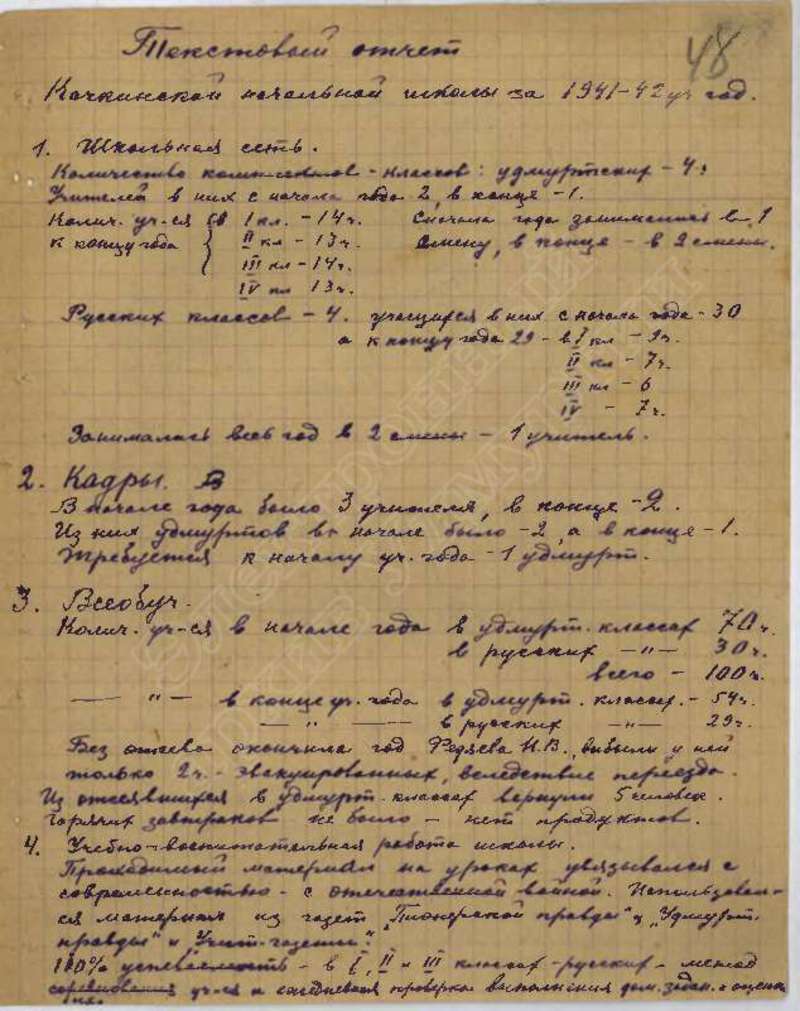 48
Текстовый отчет
Качкинской начальной школы за 1941-42 уч год.
1. Школьная сеть.
Количество комплектов - классов: удмуртских - 4.
Учителей в них с начала года 2, в конце - 1.
Колич. уч-ся в I кл. - 14 ч. Сначала года занимались в 1
к концу года II кл - 13 ч. смену, в конце - в 2 смены.
III кл - 14 ч.
IV кл 13 ч.
Русских классов - 4. учащихся в них с начала года - 30
а к концу года 29 - в I кл - 9 ч.
II кл - 7 ч.
III кл - 6
IV - 7 ч.
Занималась весь год в 2 смены - 1 учитель.
2. Кадры. В
В начале года было 3 учителя, в конце - 2.
Из них удмуртов в начале было - 2, а в конце - 1.
Требуется к началу уч. года - 1 удмурт.
3. Всеобуч.
Колич. уч-ся в начале года в удмурт. классах 70 ч.
в русских —"— 30 ч.
всего - 100 ч.
—"— в конце уч. года в удмурт. классах. - 54 ч.
—"— в русских —"— 29 ч.
Без отсева окончила год Н.В., выбыли у ней
только 2 ч. - эвакуированных, вследствие переезда.
Из отсеявшихся в удмурт. классах вернули 5 человек.
Горячих завтраков не было - нет продуктов.
4. Учебно-воспитательная работа школы.
Проходимый материал на уроках увязывался с
современностью - с отечественной войной. Использовал-
ся материал из газет „Пионерской правды" и „Удмурт.
правды" и „Учит. газеты".
100% успеваемость - в I, II и III классах - русских - метод
соревнования уч-ся и ежедневная проверка выполнения дом. задан. и оценка
их.